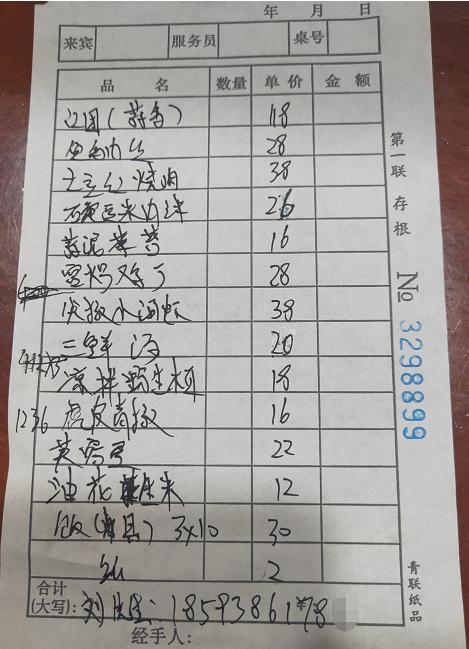 年 月 日
来宾 服务员 桌号
品 名 数量 单价 金额
江团(蒜香) 118
鱼香肉丝 28
土豆红烧肉 38
豌豆米肉沫 26
蒜泥苦苔 16
宫爆鸡丁 28
伏椒小河虾 38
三鲜汤 20
凉拌野生菌 18
1236 虎皮青椒 16
芙蓉蛋 22
油花生米 12
饭( ) 3×10 30
纸 2
合计
(大写): 刘 : 18593861¥78
经手人:
第一联 存根
No 3298899
青联纸品